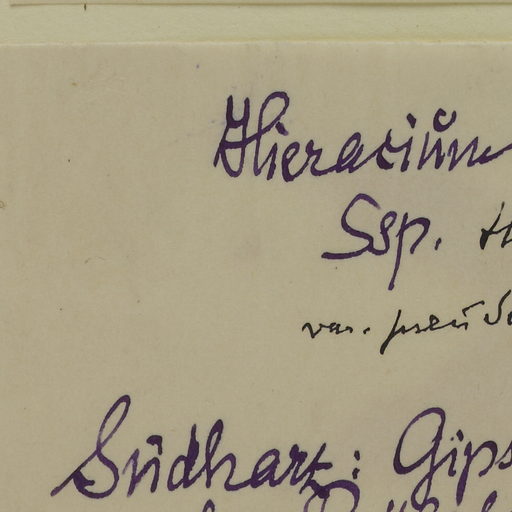 Hieracium
Ssp.
var. pseudo
Südharz: Gips